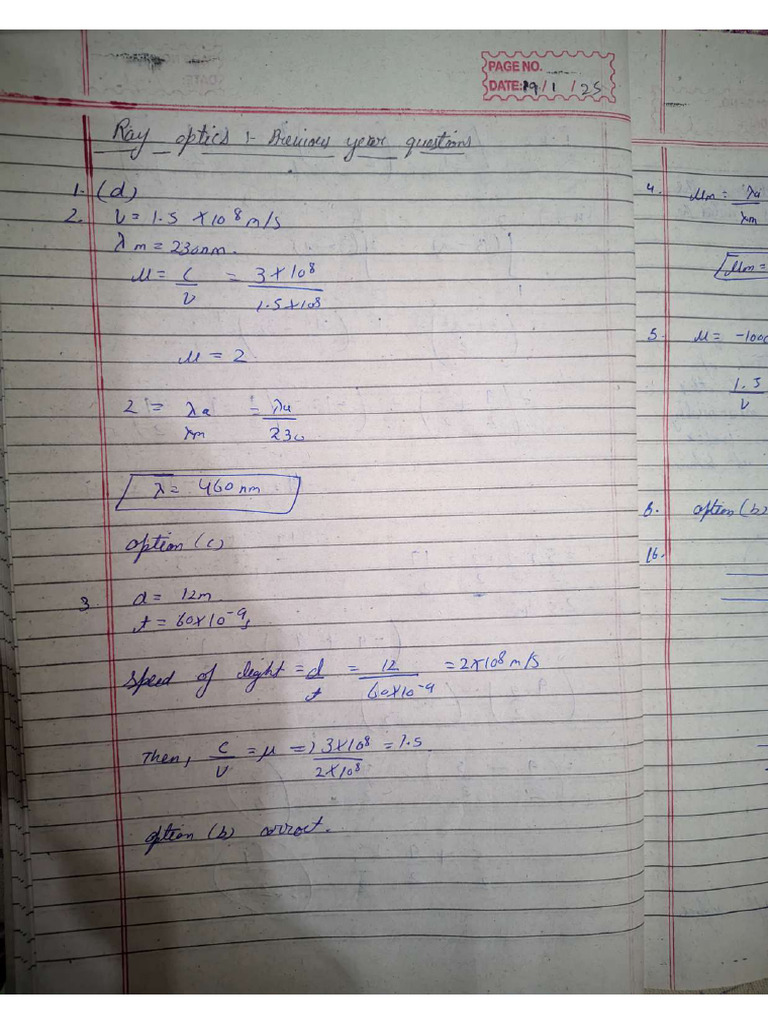 PAGE NO.
DATE: 19/1/25
Ray optics :- Previous year questions
1. (d)
2. v = 1.5 × 10⁸ m/s
λm = 230nm.
μ = c/v = 3×10⁸/1.5×10⁸
μ = 2
2 = λa/λm = λa/230
λ = 460 nm
option (c)
3. d = 12m
t = 60×10⁻⁹s
speed of light = d/t = 12/60×10⁻⁹ = 2×10⁸ m/s
Then, c/v = μ = 3×10⁸/2×10⁸ = 1.5
option (b) correct.
4. μm = λa/λm
μm =
5. μ = -100
1.5/v
option (b)
16.